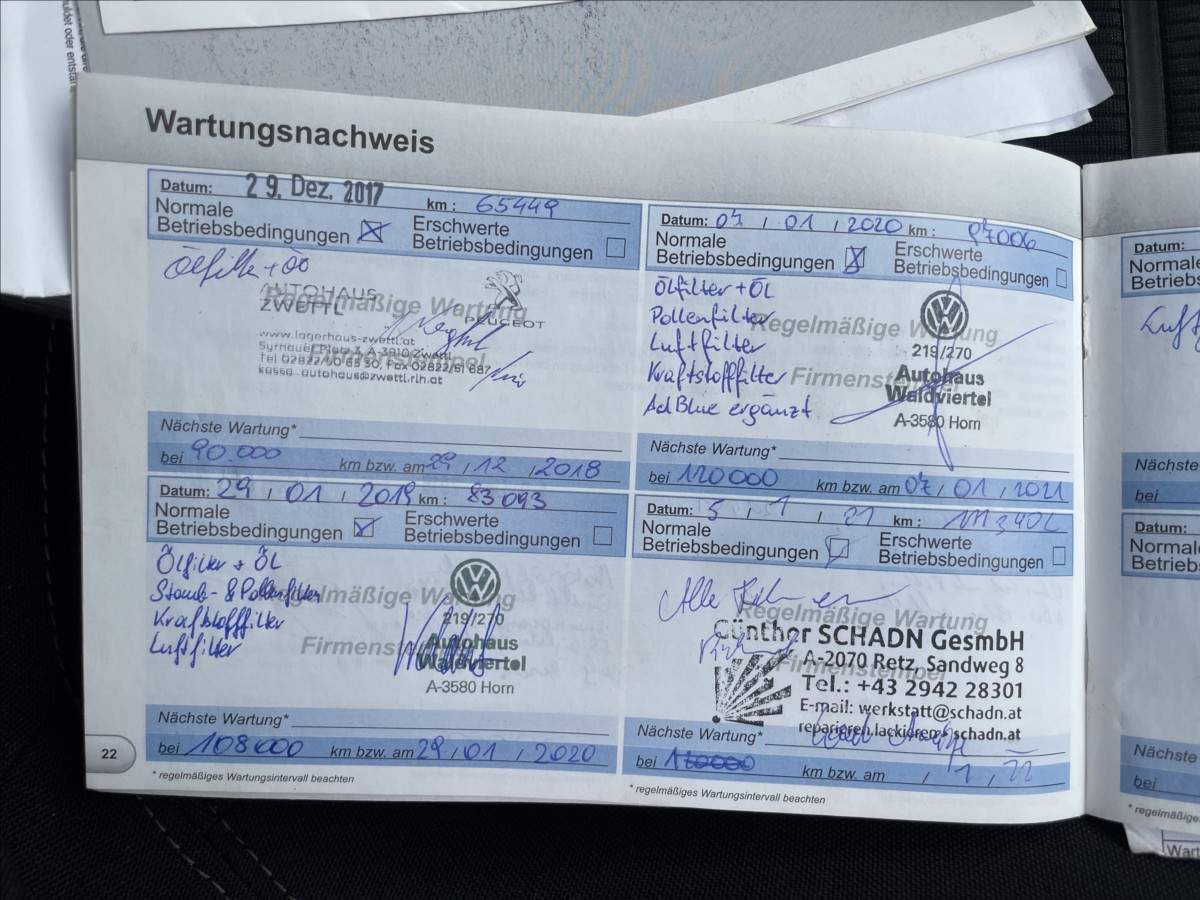 Wartungsnachweis
Datum: 29. Dez. 2017 km : 65449
Normale Betriebsbedingungen
Erschwerte Betriebsbedingungen
Ölfilter + Öl
Regelmäßige Wartung
AUTOHAUS
ZWETTL
PEUGEOT
www.lagerhaus-zwettl.at
Firmenstempel
autohaus@zwettl.rlh.at
Nächste Wartung*
bei 90.000 km bzw. am 29 / 12 / 2018
Datum: 29 / 01 / 2019 km : 83093
Normale Betriebsbedingungen
Erschwerte Betriebsbedingungen
Ölfilter + ÖL
Staub- & Pollenfilter
Kraftstofffilter
Luftfilter
Regelmäßige Wartung
Firmenstempel
219/270
Autohaus
Waldviertel
A-3580 Horn
Nächste Wartung*
bei 108000 km bzw. am 29 / 01 / 2020
* regelmäßiges Wartungsintervall beachten
22
Datum: 07 / 01 / 2020 km : 97006
Normale Betriebsbedingungen
Erschwerte Betriebsbedingungen
Ölfilter + ÖL
Pollenfilter
Luftfilter
Kraftstofffilter
AdBlue ergänzt
Regelmäßige Wartung
Firmenstempel
219/270
Autohaus
Waldviertel
A-3580 Horn
Nächste Wartung*
bei 120000 km bzw. am 07 / 01 / 2021
Datum: 5 / 1 / 21 km :
Normale Betriebsbedingungen
Erschwerte Betriebsbedingungen
Alle
Regelmäßige Wartung
Firmenstempel
Günther SCHADN GesmbH
A-2070 Retz, Sandweg 8
Tel.: +43 2942 28301
E-mail: werkstatt@schadn.at
reparieren.lackieren@schadn.at
Nächste Wartung*
bei km bzw. am / 1 / 22
* regelmäßiges Wartungsintervall beachten
Datum:
Normale
Betriebsbe
Luftf
Nächste
bei
Datum:
Normale
Betriebsbe
Nächste
bei
* regelmäßige